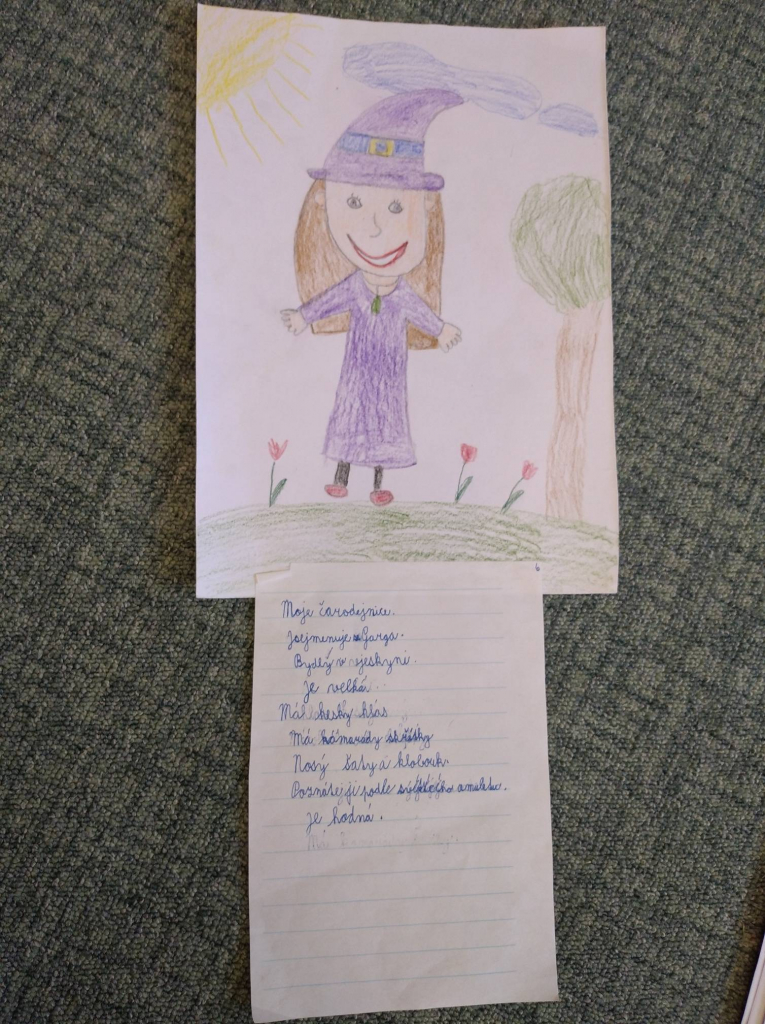 Moje čarodejnice.
Jocjmenuje Garga.
Bydlý v jeskyni.
je velká.
Má heský hlas
Má kámarády skřítky
Nosý šaty a klobouk.
Poznáte ji podle svýtícího amuletu.
je hodná.